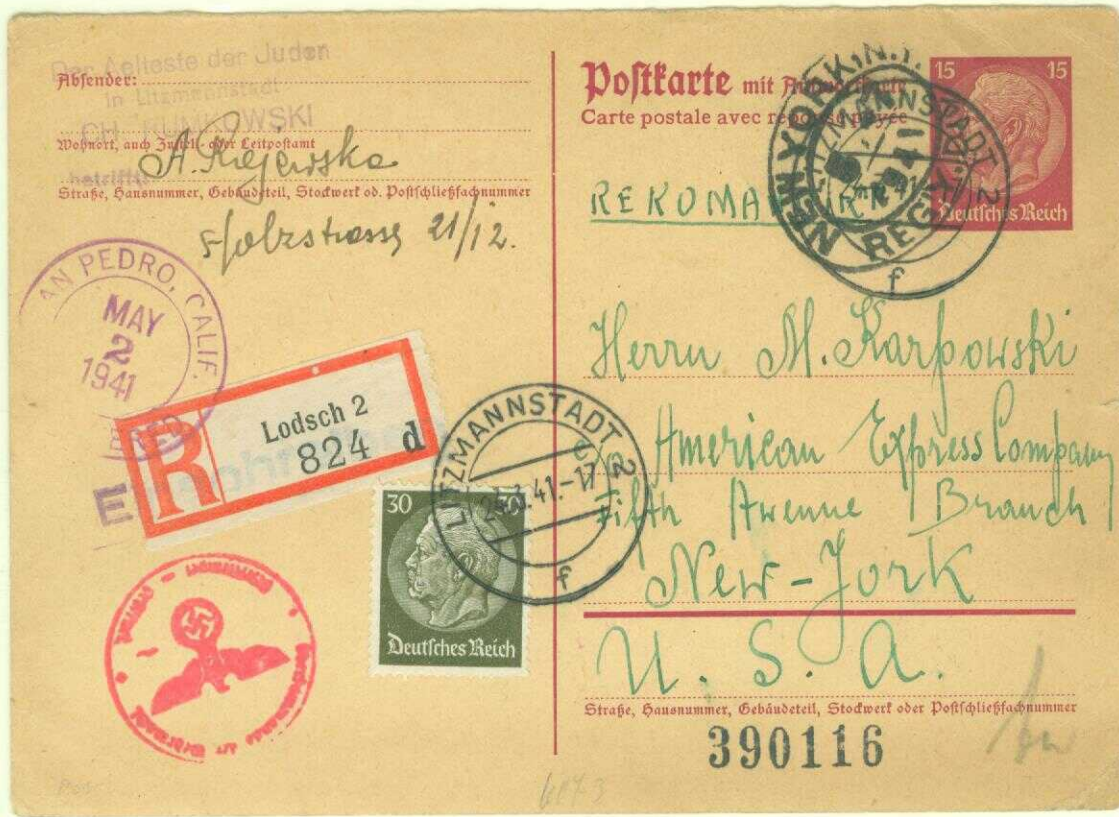 Der Aelteste der Juden
in Litzmannstadt
CH. RUMKOWSKI
betrifft:
Absender:
A. Kijewska
Wohnort, auch Zustell- oder Leitpostamt
Straße, Hausnummer, Gebäudeteil, Stockwerk od. Postschließfachnummer
Holzstrasse 21/12.
AN PEDRO, CALIF.
MAY
2
1941
R
Lodsch 2
824 d
LITZMANNSTADT 2
41.-17
f
30 30
Deutsches Reich
Postkarte mit Antwortkarte
Carte postale avec réponse payée
15 15
Deutsches Reich
NEW YORK, N.Y.
REG
LITZMANNSTADT 2
f
Herrn M. Karpowski
American Express Company
Fifth Awenue Branch
New-York
U. S. A.
Straße, Hausnummer, Gebäudeteil, Stockwerk oder Postschließfachnummer
390116